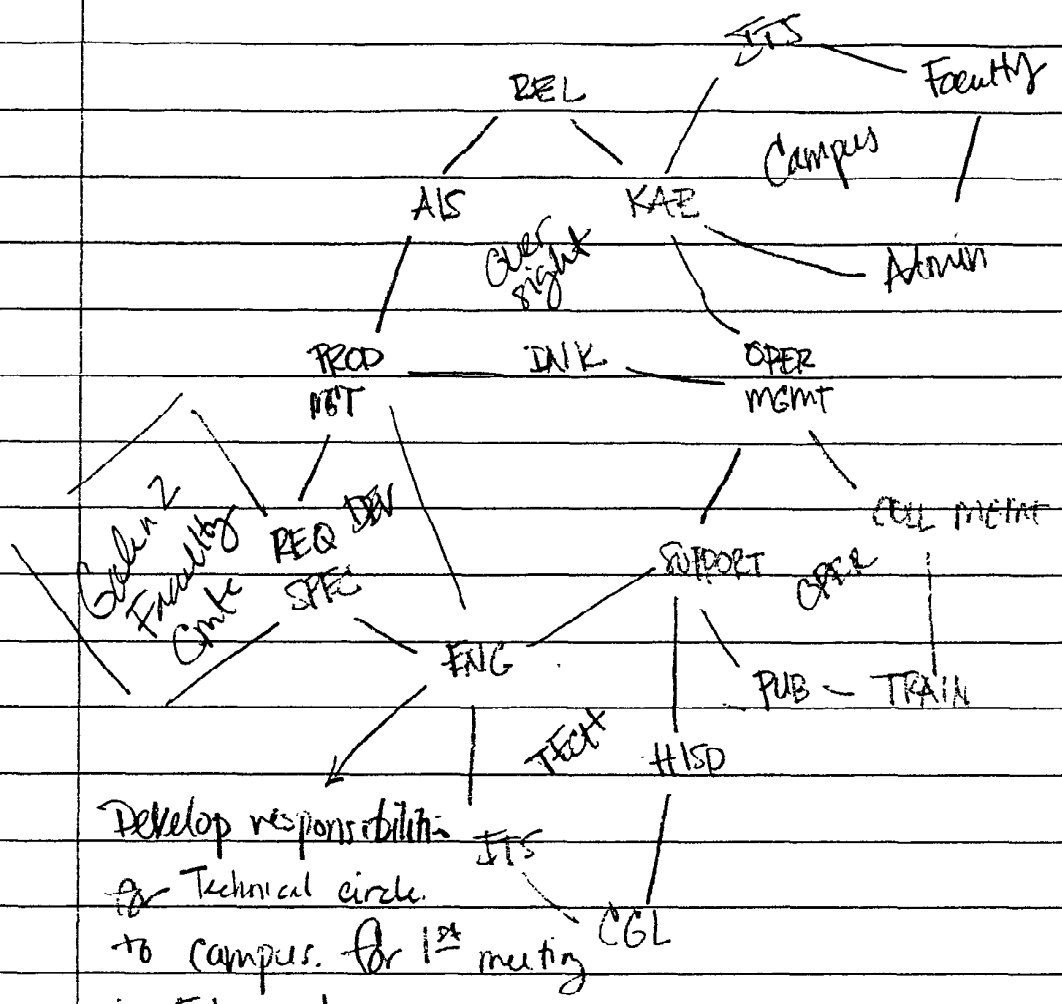 ITS
Faculty
REL
Campus
AIS
KAE
Over
sight
Admin
PROD
MGT
INK
OPER
MGMT
Faculty
Cmte
REQ DEV
SPEC
COLL MGMT
SUPPORT
OPER
ENG
PUB - TRAIN
TECH
HISD
Develop responsibilities
ITS
for Technical circle.
CGL
to campus. for 1st meeting